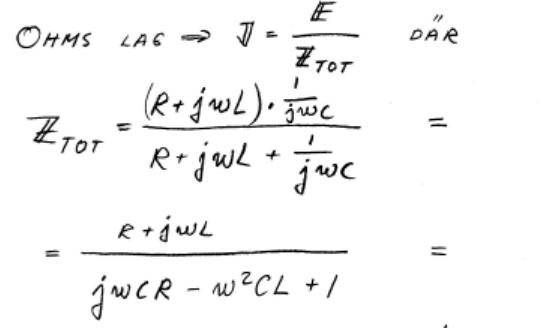 OHMS LAG ⇒ 𝕀 = 𝔼 / ℤ_TOT DÄR
ℤ_TOT = ((R + jωL) · 1/(jωC)) / (R + jωL + 1/(jωC)) =
= (R + jωL) / (jωCR - ω²CL + 1) =